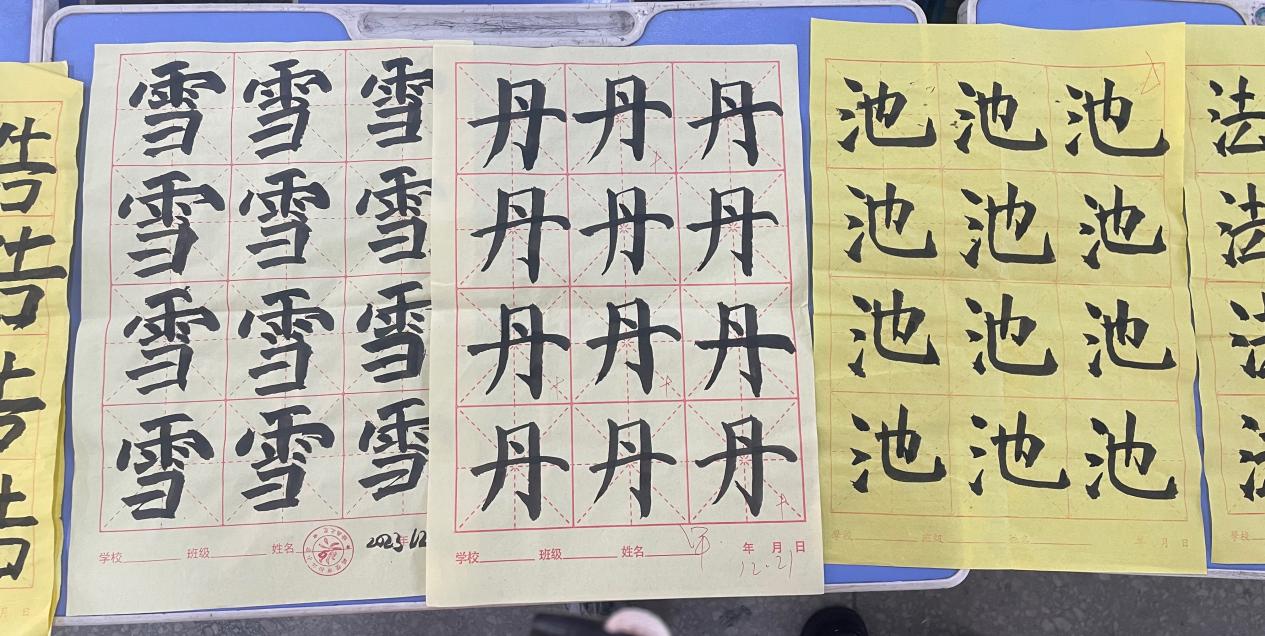 雪 雪 雪
雪 雪 雪
雪 雪 雪
雪 雪 雪
学校 班级 姓名
2023 年 12
丹 丹 丹
丹 丹 丹
丹 丹 丹
丹 丹 丹
学校 班级 姓名 年 月 日
12.21
池 池 池
池 池 池
池 池 池
池 池 池
学校 班级 姓名 年 月 日
法
法
学校